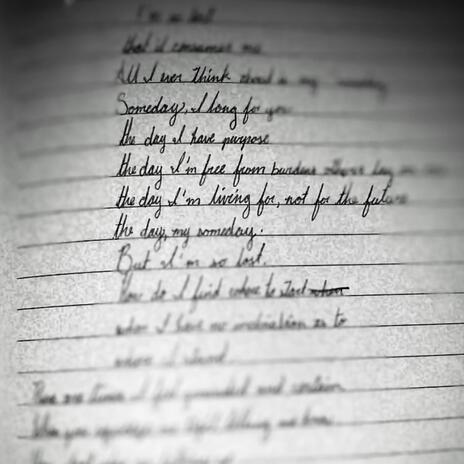 I'm so lost
that it consumes me
All I ever think about is my
Someday, I long for you
the day I have purpose
the day I'm free from burdens
the day I'm living for, not for the future
the day, my someday.
But I'm so lost.
How do I find where to start
when I have no inclination as to
where I stand
There are times I feel grounded and certain
When you squeeze me